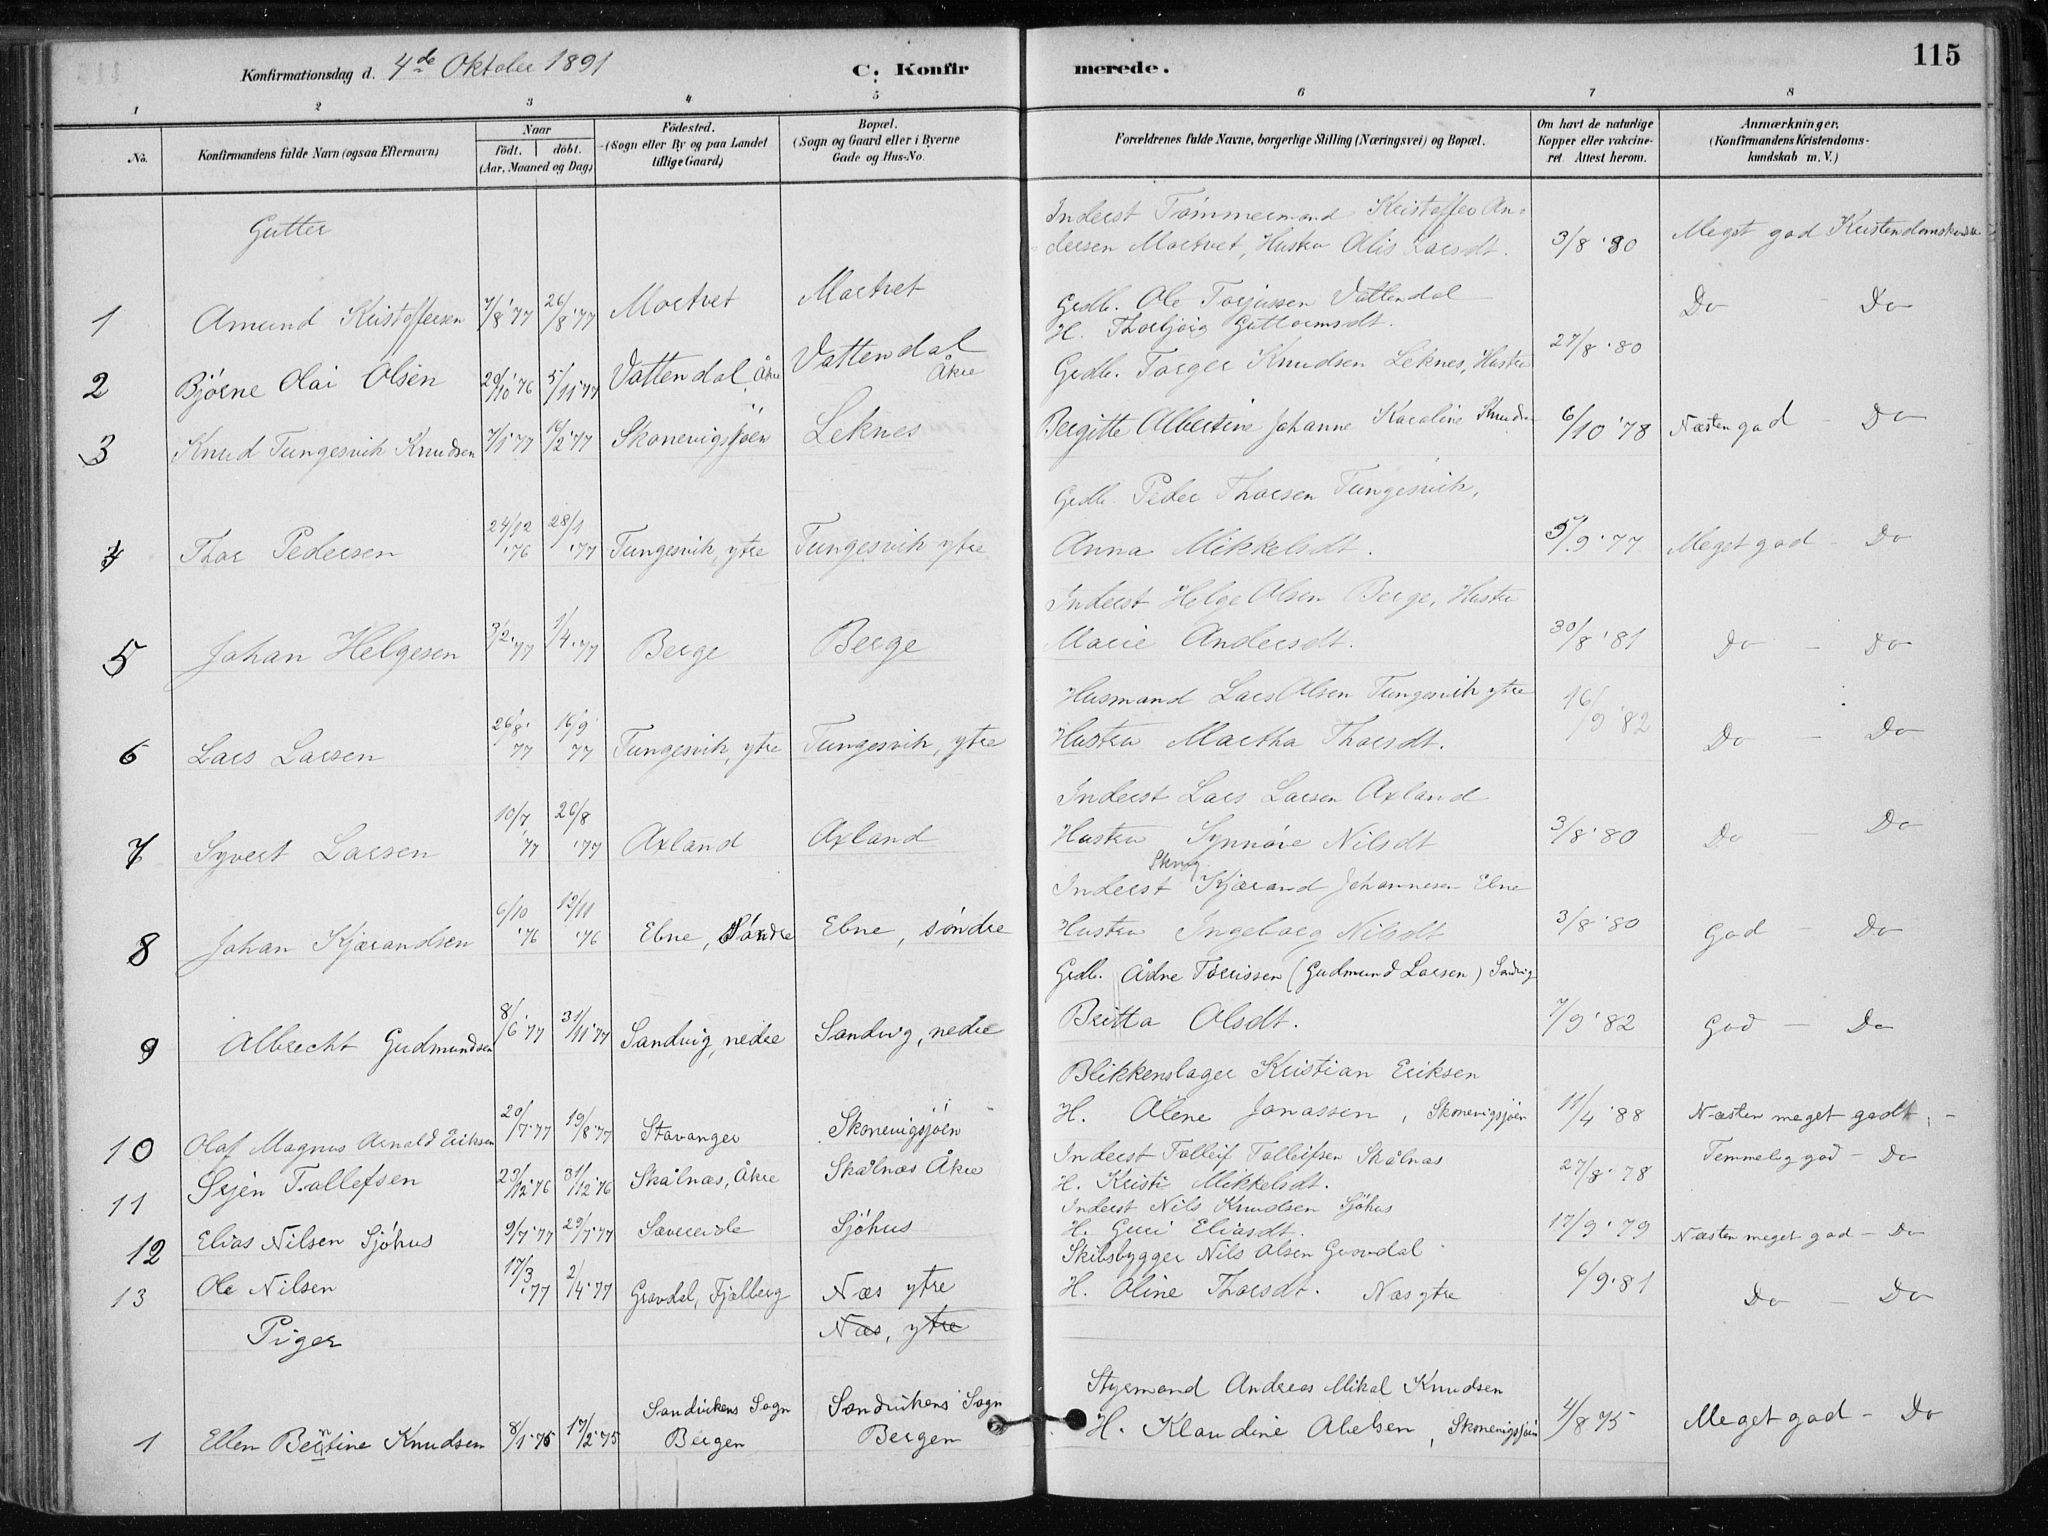 115
Konfirmationsdag d. 4de Oktober 1891 C. Konfirmerede.
1 2 3 4 5 6 7 8
No.
Konfirmandens fulde Navn (ogsaa Efternavn)
Naar
födt. döbt.
(Aar, Maaned og Dag)
Födested.
(Sogn eller By og paa Landet
tillige Gaard)
Bopæl.
(Sogn og Gaard eller i Byerne
Gade og Hus-No.
Forældrenes fulde Navne, borgerlige Stilling (Næringsvei) og Bopæl.
Om havt de naturlige
Kopper eller vakcine-
ret. Attest herom.
Anmærkninger.
(Konfirmandens Kristendoms-
kundskab m. V.)
Gutter
1 Amund Kristoffersen 7/8 '77 26/8 '77 Mortvet Mortvet
Inderst Tømmermand Kristoffer An-
dersen Mortvet, Hustru Alis Larsdt. 3/8 '80 Meget god
2 Bjørne Olai Olsen 20/10 '76 5/11 '77 Vattendal, Åkre Vattendal
Åkre
Grdb. Ole Torjussen Vattendal
H. Thorbjørg Guttormsdt. 27/8 '80 Do - Do
3 Knud Tungesvik Knudsen 7/1 '77 Skonevigsjöen Leknes
Grdb. Torger Knudsen Leknes, Hustru
Bergitte Albertine Johanne Karoline 6/10 '78 Næsten god - Do
4 Thor Pedersen 24/12 '76 28/1 '77 Tungesvik, ytre Tungesvik ytre
Grdb. Peder Thorsen Tungesvik,
Anna Mikkelsdt. 5/9 '77 Meget god - Do
5 Johan Helgesen 3/2 '77 1/4 '77 Berge Berge
Inderst Helge Olsen Berge, Hustru
Marie Andersdt. 30/8 '81 Do - Do
6 Lars Larsen 26/8 '77 16/9 '77 Tungesvik, ytre Tungesvik, ytre
Husmand Lars Olsen Tungesvik ytre
Hustru Martha Thorsdt. 16/9 '82 Do - Do
7 Syvert Larsen 10/7 '77 26/8 '77 Axland Axland
Inderst Lars Larsen Axland
Hustru Synnøve Nilsdt 3/8 '80 Do Do
8 Johan Kjærandsen 6/10 '76 12/11 '76 Ebne, Søndre Ebne, søndre
Inderst Kjærand Johannesen Ebne
Hustru Ingeborg Nilsdt 3/8 '80 God - Do
9 Albrecht Gudmundsen 8/6 '77 31/11 '77 Sandvig, nedre Sandvig, nedre
Grdb. Ådne Torrissen (Gudmund Larsen) Sandvig
Britta Olsdt. 7/9 '82 God - Do
10 Olaf Magnus Arnold Eriksen 20/7 '77 19/8 '77 Stavanger Skonevigsjöen
Blikkenslager Kristian Eriksen
H. Olene Jonassen, Skonevigsjöen 11/4 '88 Næsten meget godt; -
11 Sejen Tollefsen 23/12 '76 31/12 '76 Skålnæs, Åkre Skålnæs Åkre
Inderst Tolleif Tolleifsen Skålnæs
H. Kristi Mikkelsdt. 27/8 '78 Temmelig god - Do
12 Elias Nilsen Sjöhus 9/7 '77 29/7 '77 Sævereide Sjöhus
Inderst Nils Knudsen Sjöhus
H. Guri Eliasdt. 17/9 '79 Næsten meget god - Do
13 Ole Nilsen 17/3 '77 2/4 '77 Gravdal, Fjelberg Næs ytre
Skibsbygger Nils Olsen Gravdal
H. Oline Thorsdt. Næs ytre 6/9 '81 Do - Do
Piger
Næs, ytre
1 Ellen Berntine Knudsen 8/1 '75 17/2 '75 Sandvikens Sogn
Bergen Sandvikens Sogn
Bergen
Styrmand Andreas Mikal Knudsen
H. Klaudine Abelsen, Skonevigsjöen 4/8 75 Meget god - Do